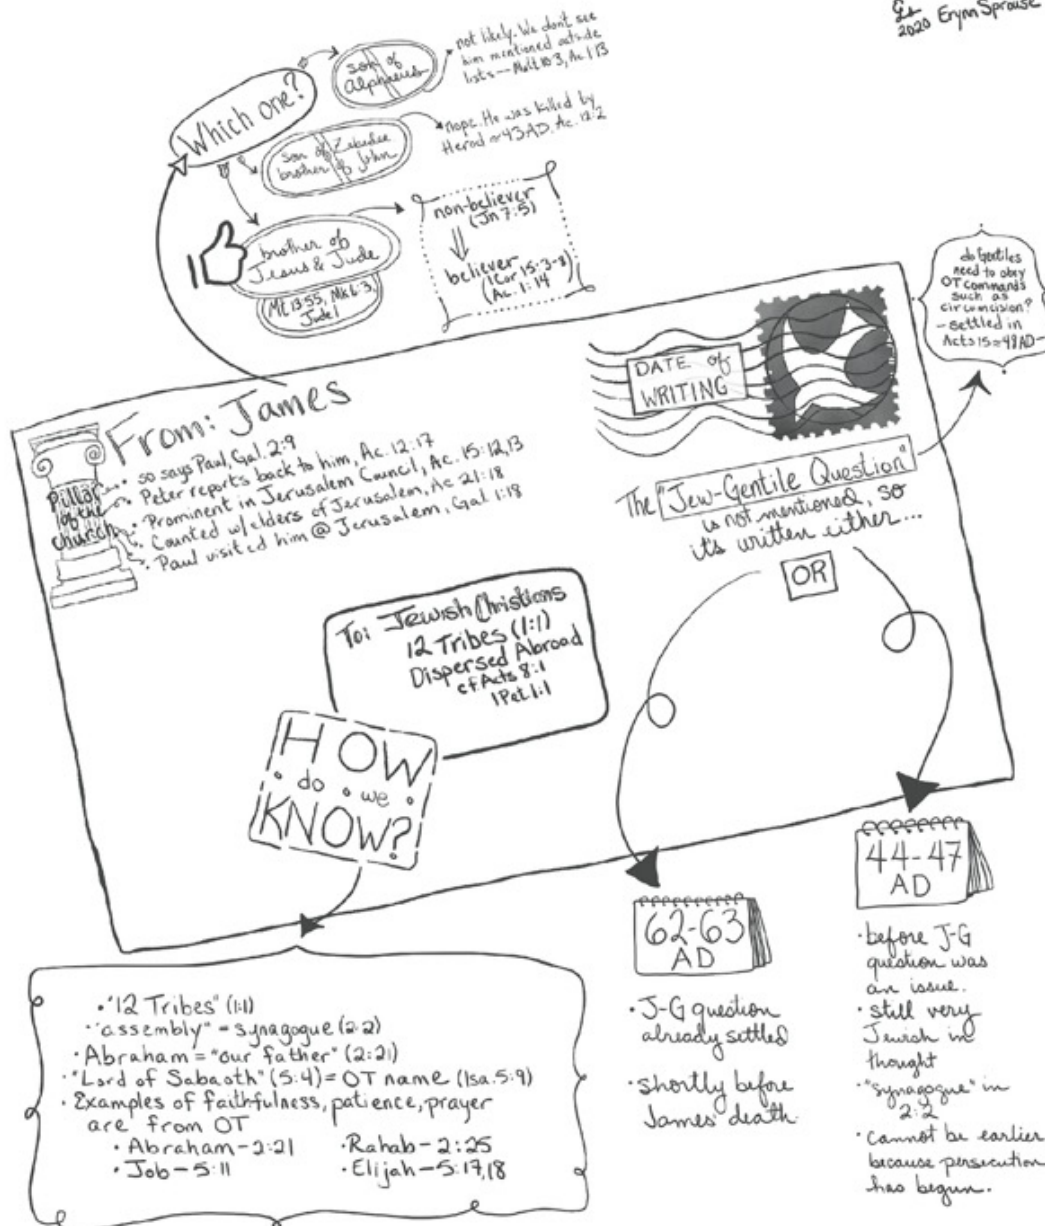 2020 Erynn Sprouse
Which one?
son of
Alphaeus
not likely. We don't see
him mentioned outside
lists -- Matt 10:3, Ac. 1:13
son of Zebedee
brother of John
nope. He was killed by
Herod ≈ 43AD, Ac. 12:2
brother of
Jesus & Jude
Mt 13:55, Mk 6:3,
Jude 1
non-believer
(Jn 7:5)
believer
(1 Cor 15:3-8)
(Ac. 1:14
do Gentiles
need to obey
OT commands
such as
circumcision?
- settled in
Acts 15 ≈ 49 AD -
DATE of
WRITING
From: James
Pillar
of the
church
• so says Paul, Gal. 2:9
• Peter reports back to him, Ac. 12:17
• Prominent in Jerusalem Council, Ac. 15:12,13
• Counted w/ elders of Jerusalem, Ac 21:18
• Paul visited him @ Jerusalem, Gal. 1:18
The "Jew-Gentile Question"
is not mentioned, so
it's written either...
OR
To: Jewish Christians
12 Tribes (1:1)
Dispersed Abroad
cf. Acts 8:1
1 Pet. 1:1
HOW
• do • we •
KNOW?
• "12 Tribes" (1:1)
• "assembly" = synagogue (2:2)
• Abraham = "our father" (2:21)
• "Lord of Sabaoth" (5:4) = OT name (Isa. 5:9)
• Examples of faithfulness, patience, prayer
are from OT
• Abraham - 2:21
• Rahab - 2:25
• Job - 5:11
• Elijah - 5:17,18
62-63
AD
• J-G question
already settled
• shortly before
James' death
44-47
AD
• before J-G
question was
an issue.
• still very
Jewish in
thought
• "synagogue" in
2:2
• cannot be earlier
because persecution
has begun.